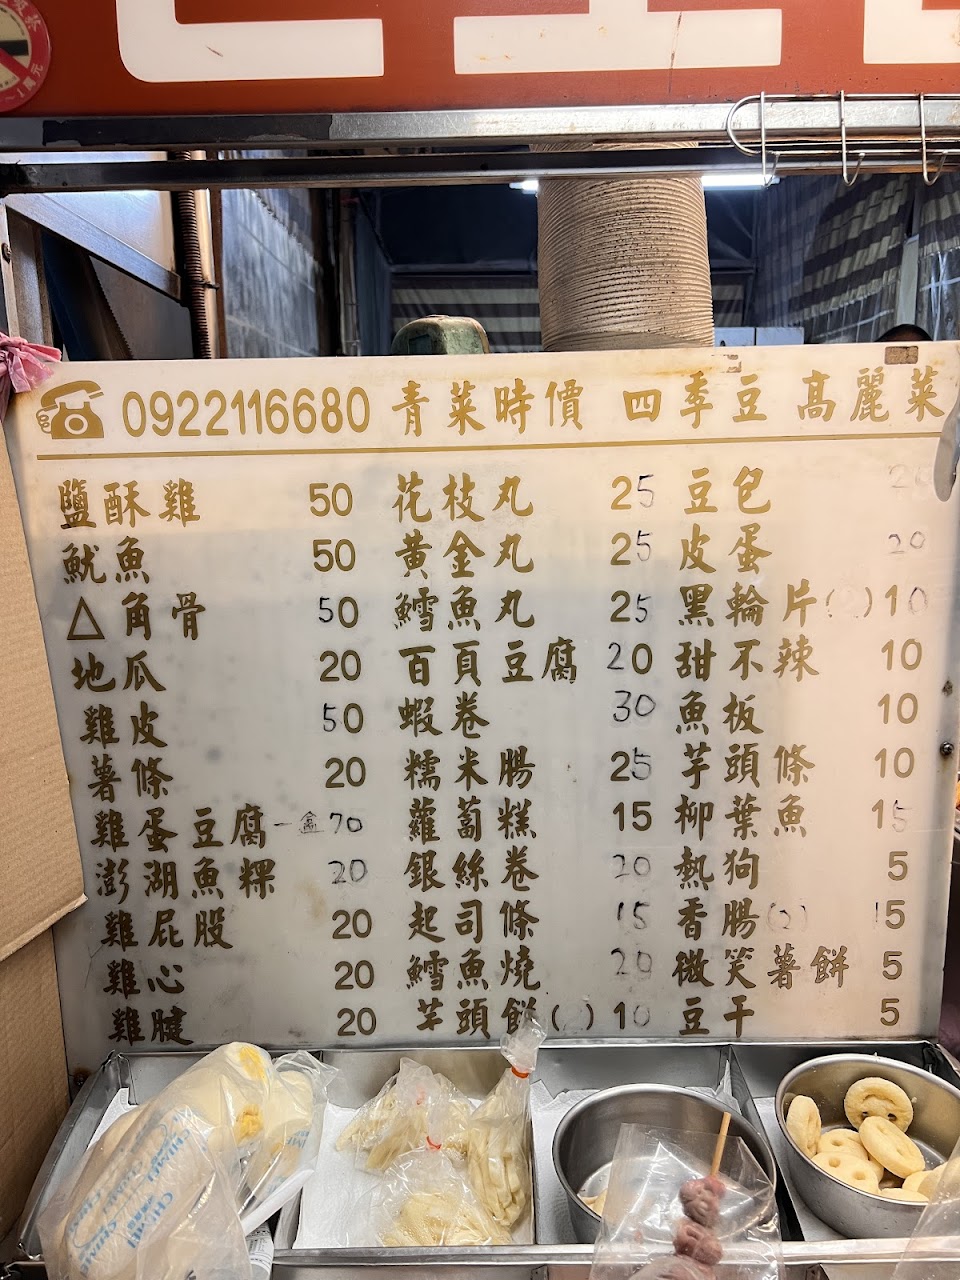 0922116680 青菜時價 四季豆 高麗菜
鹽酥雞 50
魷魚 50
△角骨 50
地瓜 20
雞皮 50
薯條 20
雞蛋豆腐一盒70
澎湖魚粿 20
雞屁股 20
雞心 20
雞腱 20
花枝丸 25
黃金丸 25
鱈魚丸 25
百頁豆腐 20
蝦卷 30
糯米腸 25
蘿蔔糕 15
銀絲卷 20
起司條 15
鱈魚燒 20
芋頭餅( ) 10
豆包 20
皮蛋 20
黑輪片( ) 10
甜不辣 10
魚板 10
芋頭條 10
柳葉魚 15
熱狗 5
香腸(2) 15
微笑薯餅 5
豆干 5